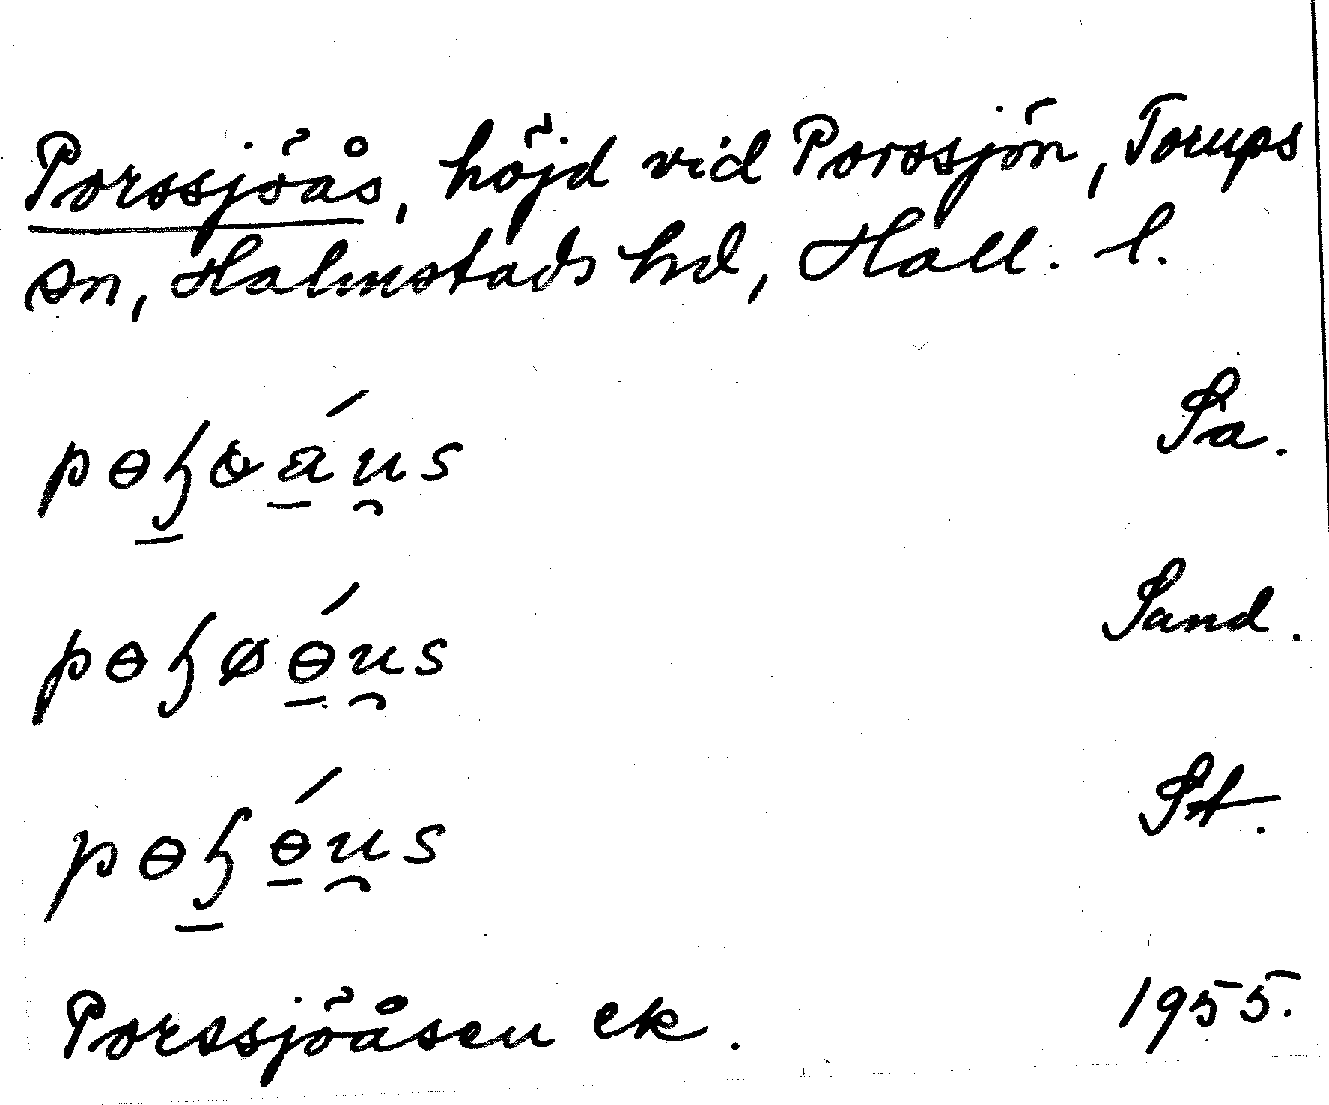 Porssjöås, höjd vid Porssjön, Torups
sn, Halmstads hd, Hall. l.
Sa.
Sand.
St.
Porssjöåsen ek. 1955.